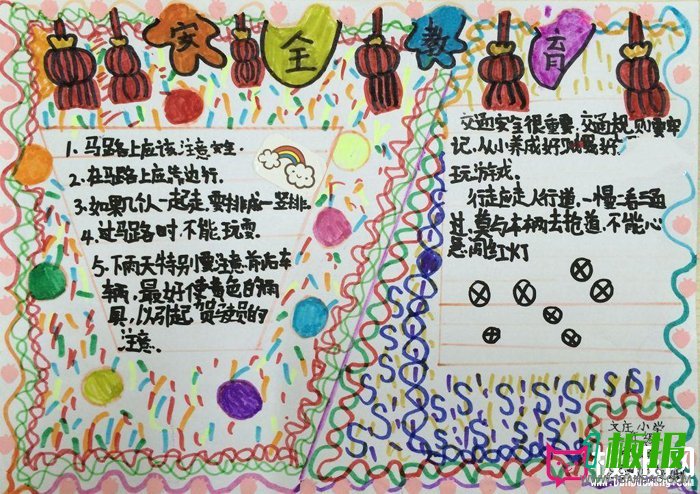 安全教育
1. 马路上应该注意安全.
2. 在马路上应靠边行.
3. 如果几个人一起走,要排成一竖排.
4. 过马路时,不能玩耍.
5. 下雨天特别要注意前后车
辆,最好使黄色的雨
具,以引起驾驶员的
注意.
交通安全很重要,交通规则要牢
记,从小养成好习惯,好
玩游戏.
行走应走人行道,一慢二看三通
过,莫与车辆去抢道,不能心
急闯红灯
文庄小学
板报网